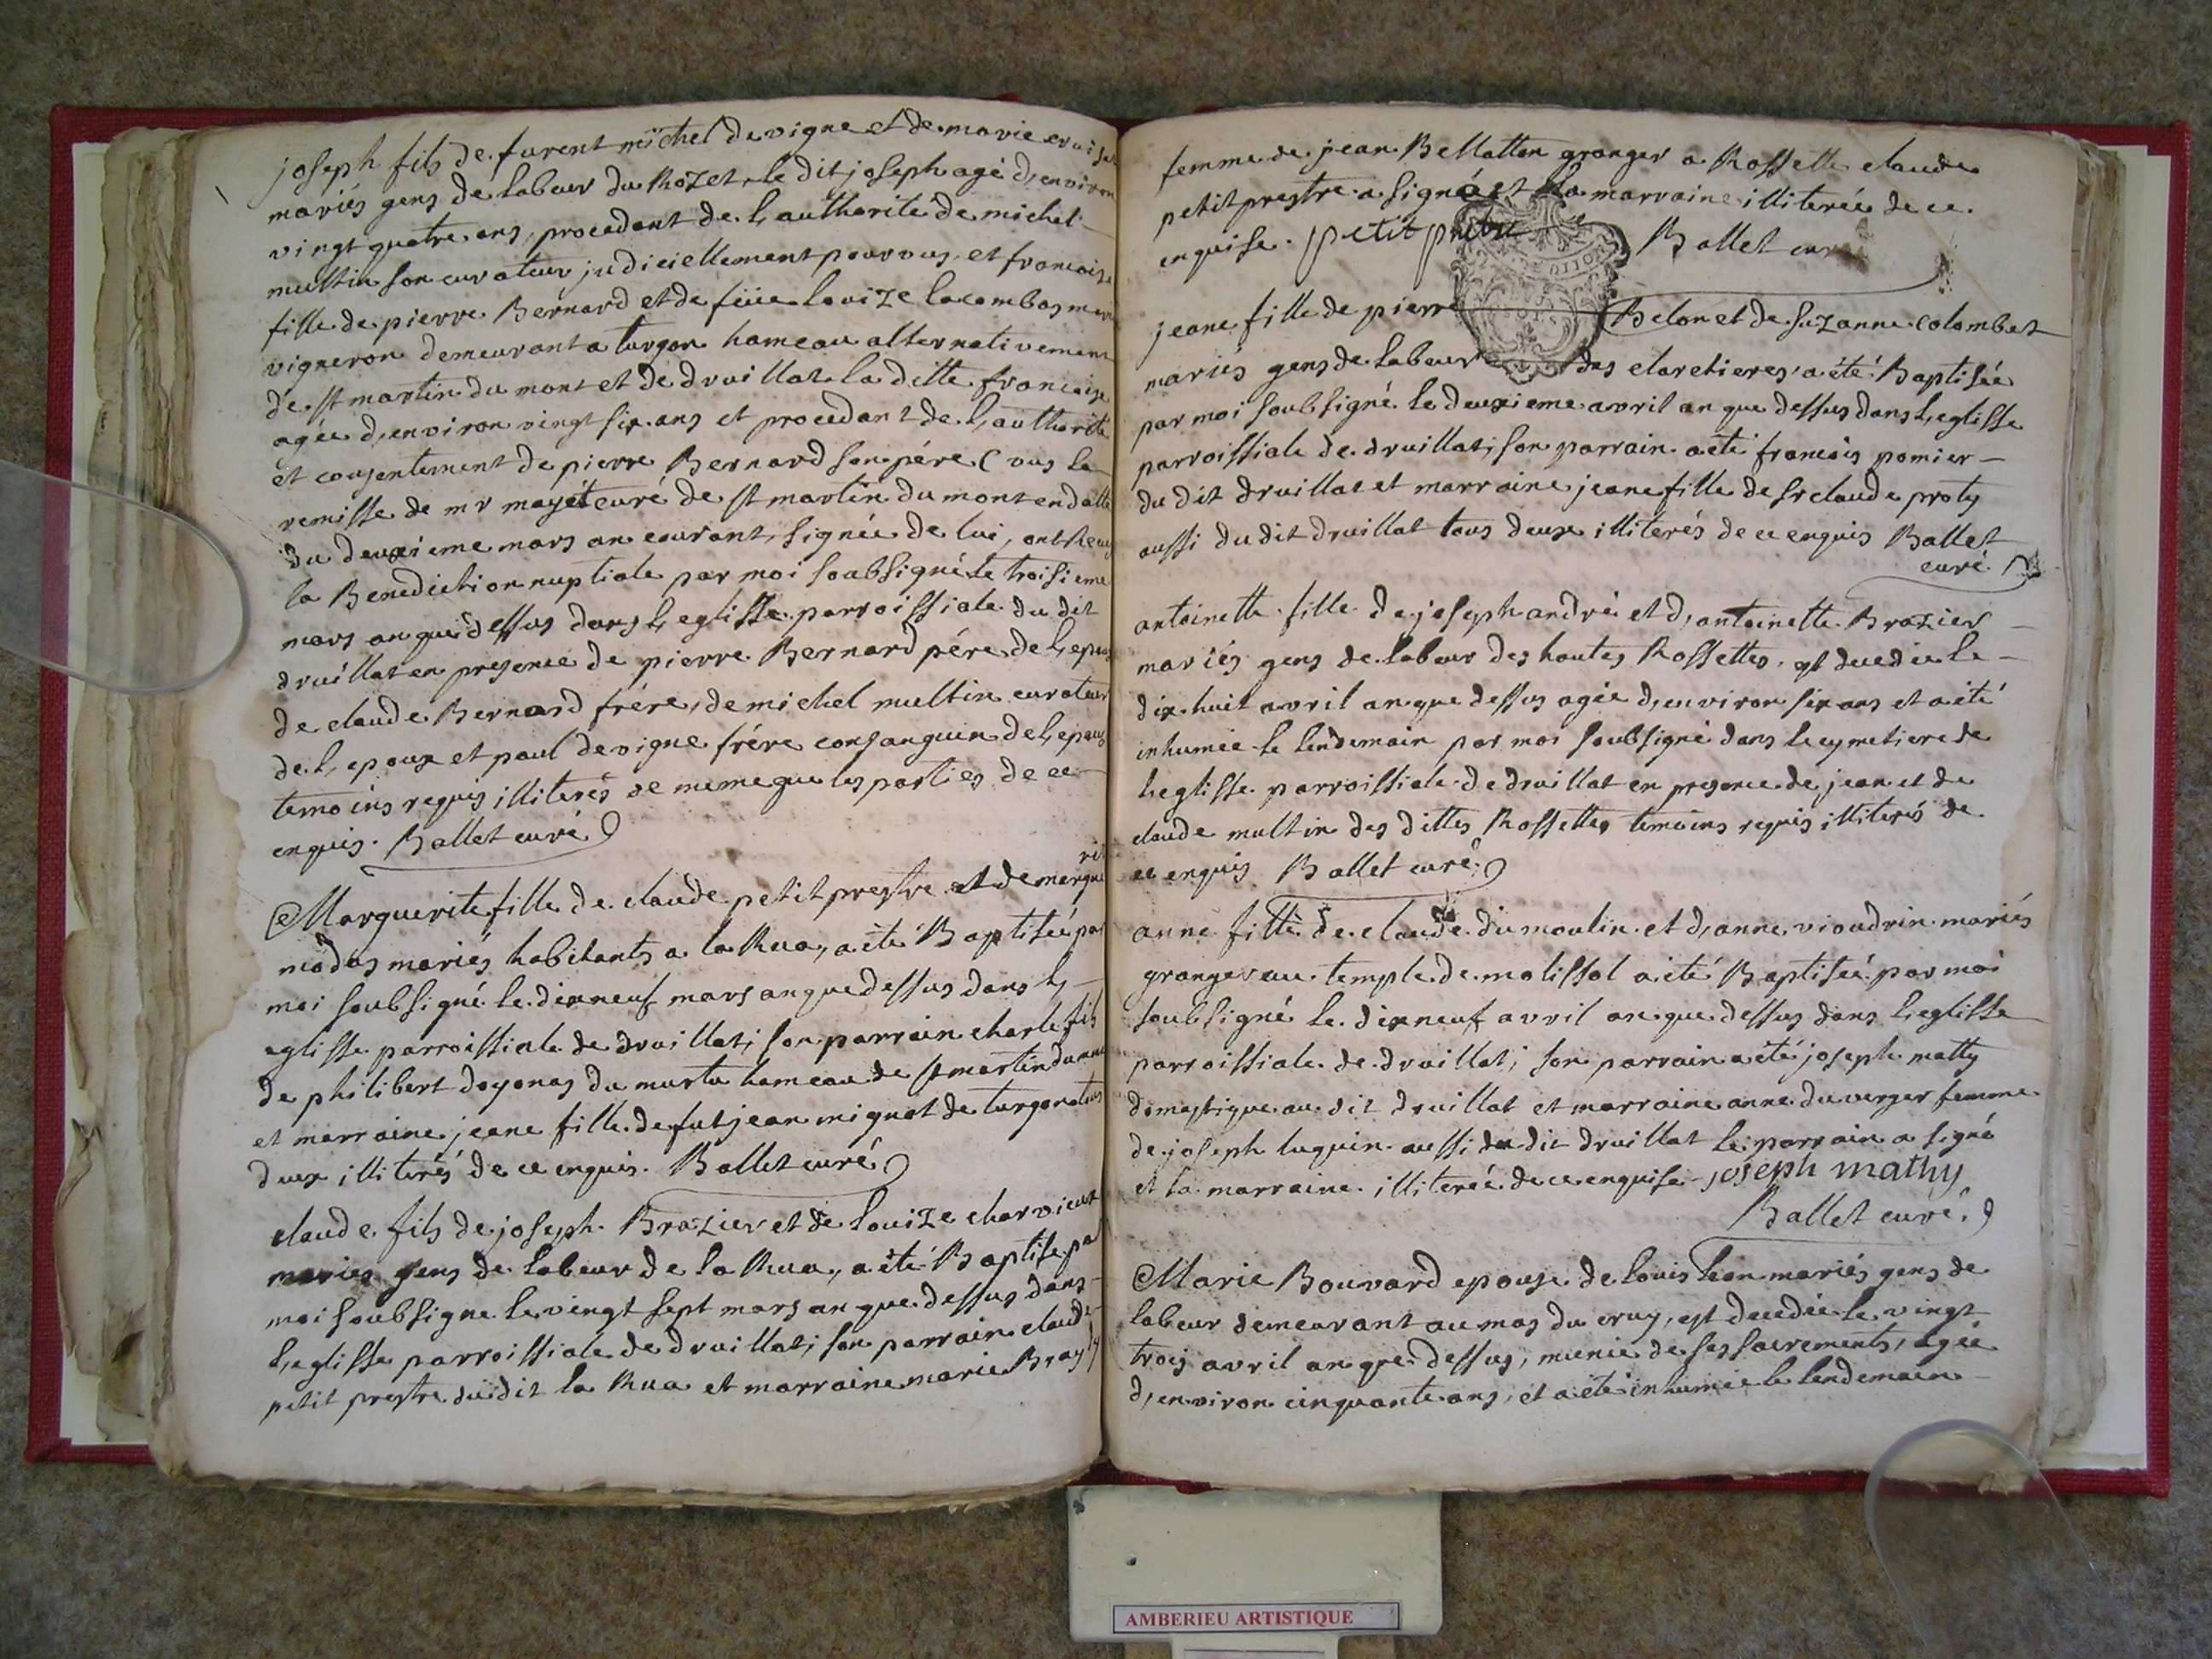 joseph fils de furent michel devigne et de marie
mariés gens de labeur du Rozet, le dit joseph agé d,environ
vingt quatre ans, procedant de l,authorité de michel
multin son curateur judiciellement pourvus, et francoise
fille de pierre Bernard et de füe louize lacombas mariés
vigneron demeurant a turgon hameau alternativement
de st martin du mont et de druillat la ditte francoise
agée d,environ vingt six ans et procedant de l,authorité
et consentement de pierre Bernard son pére (vus la
remisse de mr mayét curé de st martin du mont en datte
du deuxieme mars an courant, signée de lui, ont recu
la Benediction nuptiale par moi soubsigné le troisieme
mars an que dessus dans l,eglisse parroissiale du dit
druillat en presence de pierre Bernard pére de l,epouse
de claude Bernard frére, de michel multin curateur
de l,epoux et paul devigne frére consanguin de l,epoux
temoins requis illiterés de meme que les parties de ce
enquis. Ballet curé
Marguerite fille de claude petit prestre et de margue
rit
nodas mariés habitants a la Rua, a été Baptisée par
moi soubsigné le dixneuf mars an que dessus dans l,
eglisse parroissiale de druillat; son parrain charle fils
de philibert doyonas du murtu hameau de st martin du mont
et marraine jeane fille de fut jean mignot de turgon tous
deux illiterés de ce enquis. Ballet curé
claude fils de joseph Brazier et de louize charvieux
mariés gens de labeur de la Rua, a été Baptisé par
moi soubsigne le vingt sept mars an que dessus dans
l,eglisse parroissiale de druillat; son parrain claude
petit prestre du dit la Rua et marraine marie
femme de jean Bellatton granger a Rossette claude
petit prestre a signé et la marraine illiterée de ce
enquise. petit pretre Ballet curé
jeane fille de pierre Belon et de suzanne colombet
mariés gens de labeur des claretieres, a été Baptisée
par moi soubsigné le deuxieme avril an que dessus dans l,eglisse
parroissiale de druillat; son parrain a été francois pomier
du dit druillat et marraine jeane fille de sr claude proty
aussi du dit druillat tous deux illiterés de ce enquis Ballet
curé
antoinette fille de joseph andré et d,antoinette Brazier
mariés gens de labeur des hautes Rossettes, est decedée le
dix huit avril an que dessus agée d,environ six ans et a été
inhumée le lendemain par moi soubsigné dans le cymetiere de
l,eglisse parroissiale de druillat en presence de jean et de
claude multin des dittes Rossettes temoins requis illiterés de
ce enquis Ballet curé
anne fille de claude dumoulin et d,anne vioudrin mariés
granger au temple de molissol a été Baptisée par moi
soubsigné le dixneuf avril an que dessus dans l,eglisse
parroissiale de druillat; son parrain a été joseph matty
domestique au dit druillat et marraine anne duverger femme
de joseph luquin aussi du dit druillat le parrain a signé
et la marraine illiterée de ce enquise joseph mathy
Ballet curé
Marie Bouvard epouse de louis leon mariés gens de
labeur demeurant au mas du cruy, est decedée le vingt
trois avril an que dessus, munie de ses sacrements, agée
d,environ cinquante ans, et a été inhumée le lendemain
AMBERIEU ARTISTIQUE